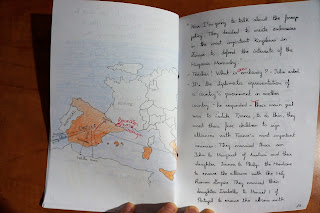 FRANCE
"Now I'm going to talk about the foreign
policy. They decided to create embassies
in the most important Kingdoms in
Europe to defend the interests of the
Hispanic Monarchy."
- Teacher! What is embassy? - Julia asked
- It's the diplomatic representation of
a country's government in another
country - he responded - Their main goal
was to isolate France, to do this, they
used their five children to sign
alliances with France's most important
enemies. They married their son
John to Margaret of Austria and their
daughter Joanna to Philip the Handsome
to ensure the alliance with the Holy
Roman Empire. They married their
daughter Isabella to Manuel I of
Portugal to ensure the alliance with